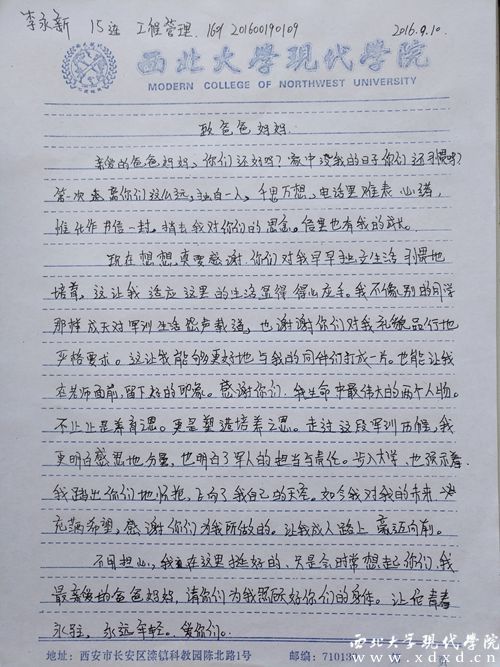 李永新 15连 工程管理 1601 201600190109 2016.9.10.
西北大学现代学院
MODERN COLLEGE OF NORTHWEST UNIVERSITY
致爸爸妈妈
亲爱的爸爸妈妈,你们还好吗?家中没我的日子你们还习惯吗?
第一次离你们这么远,独自一人,千思万想,电话里难表心诸,
惟化作书信一封。捎上我对你们的思念。信里也有我的成长。
现在想想真要感谢你们对我早早独立生活习惯地
培育,这让我适应这里的生活显得得心应手。我不像别的同学
那样成天对军训生活怨声载道,也谢谢你们对我礼貌品行地
严格要求。这让我能够更好地与我的同伴们打成一片。也能让我
在老师面前,留下好的印象。感谢你们,我生命中最伟大的两个人物。
不止止是养育之恩。更是塑造培养之恩。走过这段军训历程,我
更明白感恩地分量,也明白了军人的担当与责任。步入大学,也预示着
我踏出你们地怀抱,飞向了我自己的天空。如今我对我的未来
充满希望,感谢你们为我所做的。让我成人路上豪迈向前。
不用担心,我在这里挺好的,只是会时常想起你们,我
最亲爱的爸爸妈妈,请你们为我照顾好你们的身体。让
永驻,永远年轻。爱你们。
地址:西安市长安区滦镇科教园陈北路1号 邮编:710130
西北大学现代学院
www.xdxd.cn